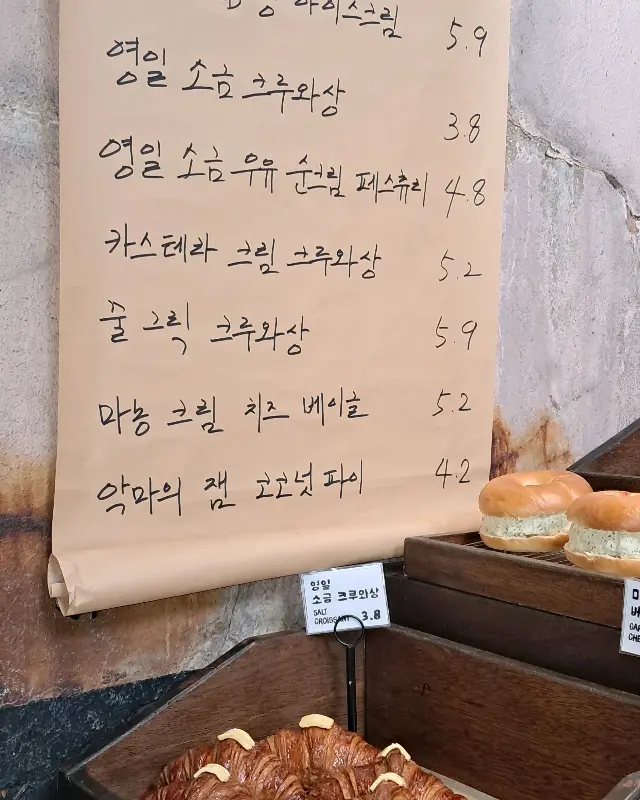 아이스크림 5.9
영일 소금 크루와상 3.8
영일 소금 우유 순크림 페스츄리 4.8
카스테라 크림 크루와상 5.2
쿨 그릭 크루와상 5.9
마농 크림 치즈 베이글 5.2
악마의 잼 코코넛 파이 4.2
영일
소금 크루와상
SALT
CROISSANT 3.8